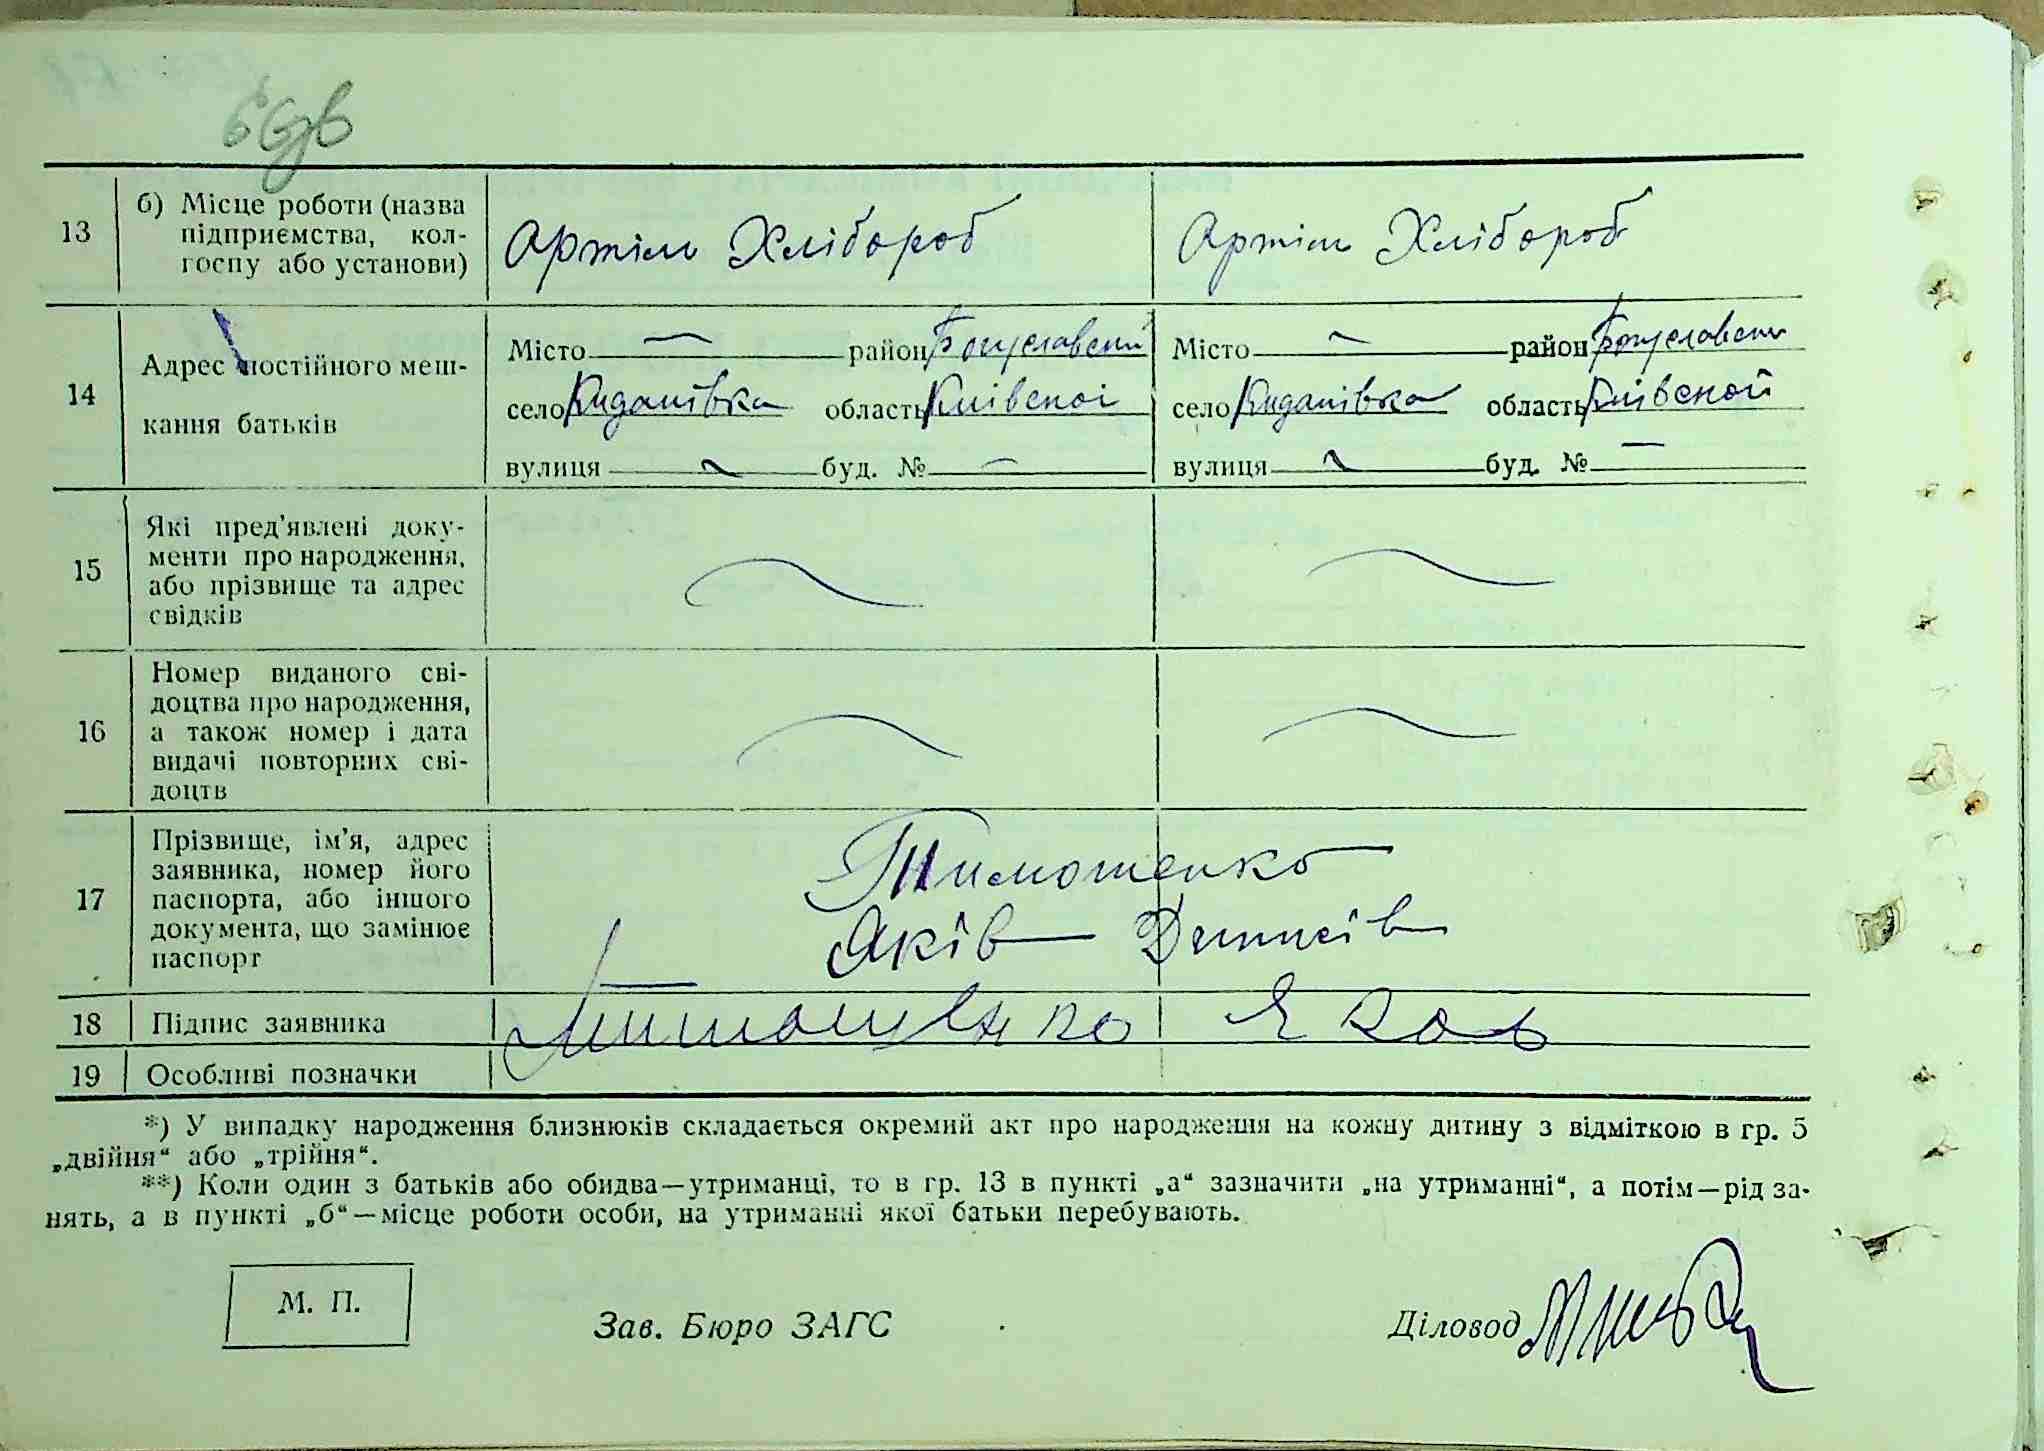 13
б) Місце роботи (назва
підприємства, кол-
госпу або установи)
Артіль Хлібороб
Артіль Хлібороб
14
Адрес постійного меш-
кання батьків
Місто — район Богуславський
село Киданівка область Київської
вулиця — буд. № —
Місто — район Богуславський
село Киданівка область Київской
вулиця — буд. № —
15
Які пред'явлені доку-
менти про народження,
або прізвище та адрес
свідків
16
Номер виданого сві-
доцтва про народження,
а також номер і дата
видачі повторних сві-
доцтв
17
Прізвище, ім'я, адрес
заявника, номер його
паспорта, або іншого
документа, що замінює
паспорт
Тимошенко
Яків Денисів
18
Підпис заявника
Тимошенко Яков
19
Особливі позначки
*) У випадку народження близнюків складається окремий акт про народження на кожну дитину з відміткою в гр. 5
„двійня“ або „трійня“.
**) Коли один з батьків або обидва—утриманці, то в гр. 13 в пункті „а“ зазначити „на утриманні“, а потім—рід за-
нять, а в пункті „б“—місце роботи особи, на утриманні якої батьки перебувають.
М. П.
Зав. Бюро ЗАГС
Діловод